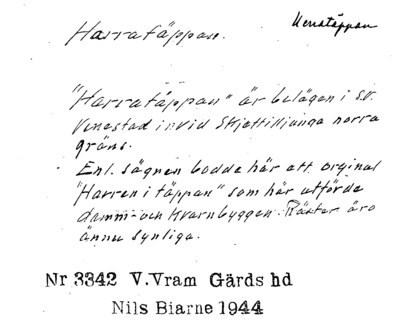 Harratäppan.
Herratäppan
"Harratäppan" är belägen i S.V.
Venestad invid Skjettilljunga norra
gräns.
Enl. sägnen bodde här ett orginal
"Harren i täppan" som här utförde
damm- och kvarnbyggen. Räster äro
ännu synliga.
Nr 3342 V.Vram Gärds hd
Nils Biarne 1944